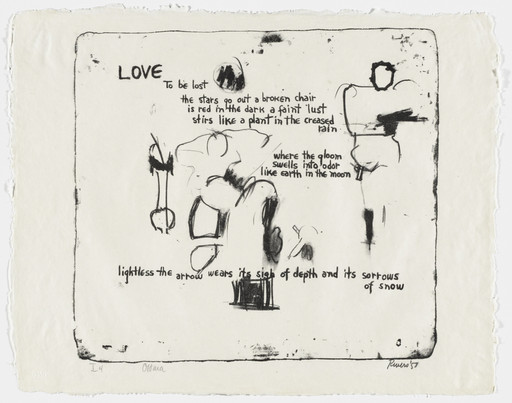 LOVE
To be lost
the stars go out a broken chair
is red in the dark a faint lust
stirs like a plant in the creased
rain
where the gloom
swells into odor
like earth in the moon
lightless the arrow wears its sigh of depth and its sorrows
of snow